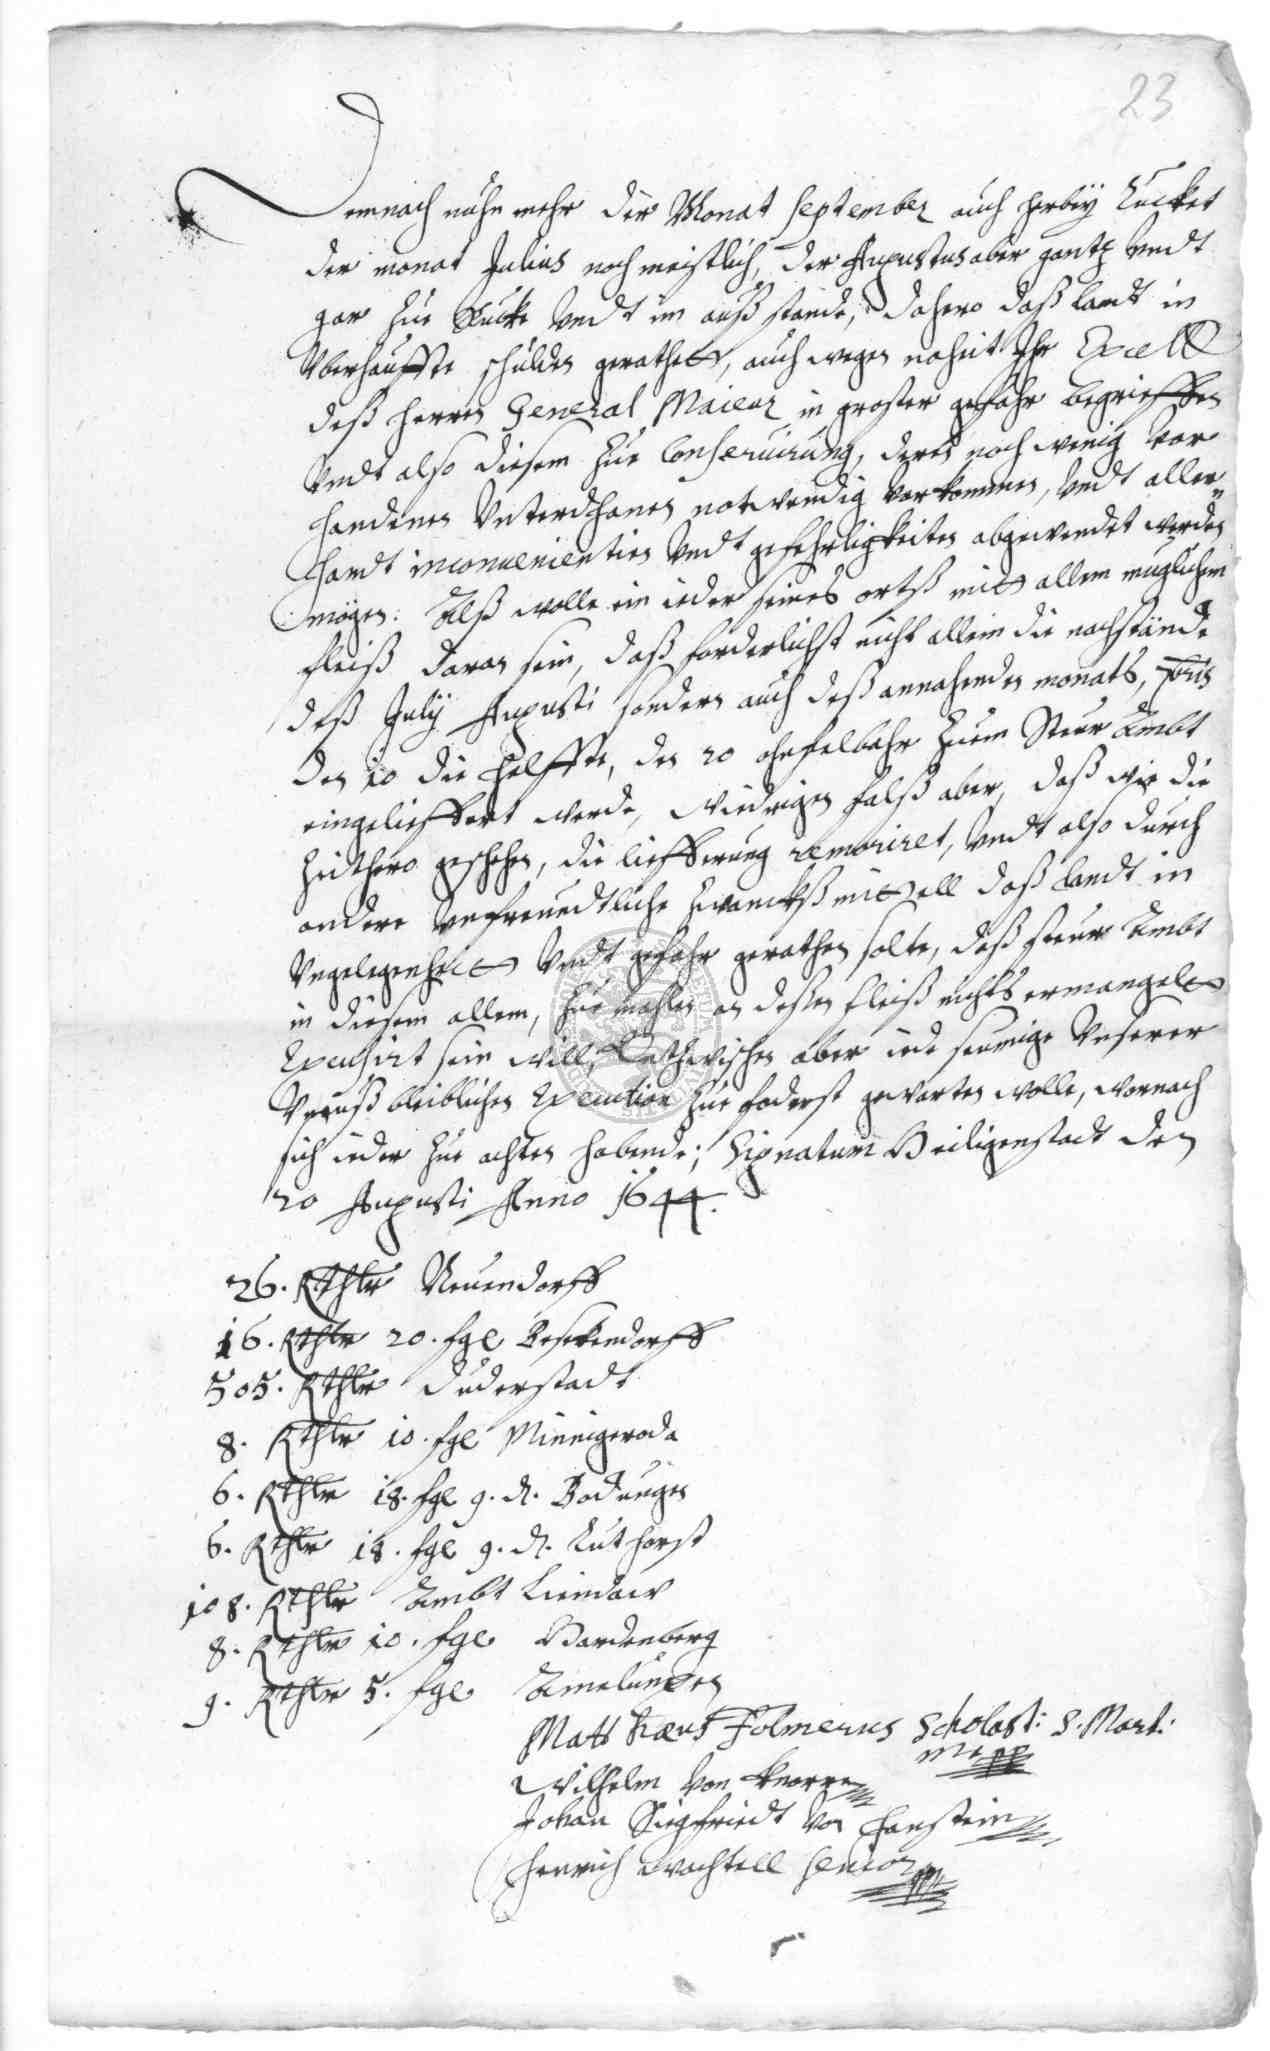 23
Demnach nuhn mehr der Monat September auch herbey Rucket
der monat Julius noch meistlich, der Augustus aber gantz undt
gar zue Rucke undt im außstande, dahero daß landt in
Uberhauffte schulden gerathet, auch wegen Ihr Excell
deß herren General Maieur in groster gefahr begrieffen
undt also diesem zue Conservirung, deren noch wenig vor
handenen Unterdthanen notwendig vorkommen, undt aller
handt inconvenientien undt gefehrligkeiten abgewendet werden
mögen: Alß wolle ein ieder seines ortß mit allem muglichem
fleiß daran sein, daß forderlichst nicht allein die nachstände
deß July Augusti sondern auch deß annahenden monats, 7bris
den 10 die helffte, den 20 ohnfelbahr zuem Steur Ambt
eingelieffert werde, wiedrigen falß aber, daß wie die
Zeithero geschehen, die lieffrung remoriret, undt also durch
andere unfreundtliche zwanckßmittell daß landt in
Ungelegenheit undt gefahr gerathen solte, daß steur Ambt
in diesem allem, zue mahlen an deßen fleiß nichts ermangelt
Excusirt sein will, aber iede seumige Unserer
Unaußbleiblichen Execution zue foderst gewarten wolle, wornach
sich ieder zue achten habende; Signatum Heiligenstadt den
20 Augusti Anno 1644.
26. Rthlr Neuendorff
16. Rthlr 20. sgl Besekendorff
505. Rthlr Duderstadt
8. Rthlr 10. sgl Minnigeroda
6. Rthlr 18. sgl 9. d. Bodungen
6. Rthlr 18. sgl 9. d. Luthorst
108. Rthlr Ambt Lindaw
8. Rthlr 10. sgl Hardenberg
9. Rthlr 5. sgl Amelunxen
Matthaeus Folmerus Scholast: S. Mart:
mppp
Wilhelm von Knorre
Johan Siegfriedt von Hanstein
Henrich Wachtell Senior